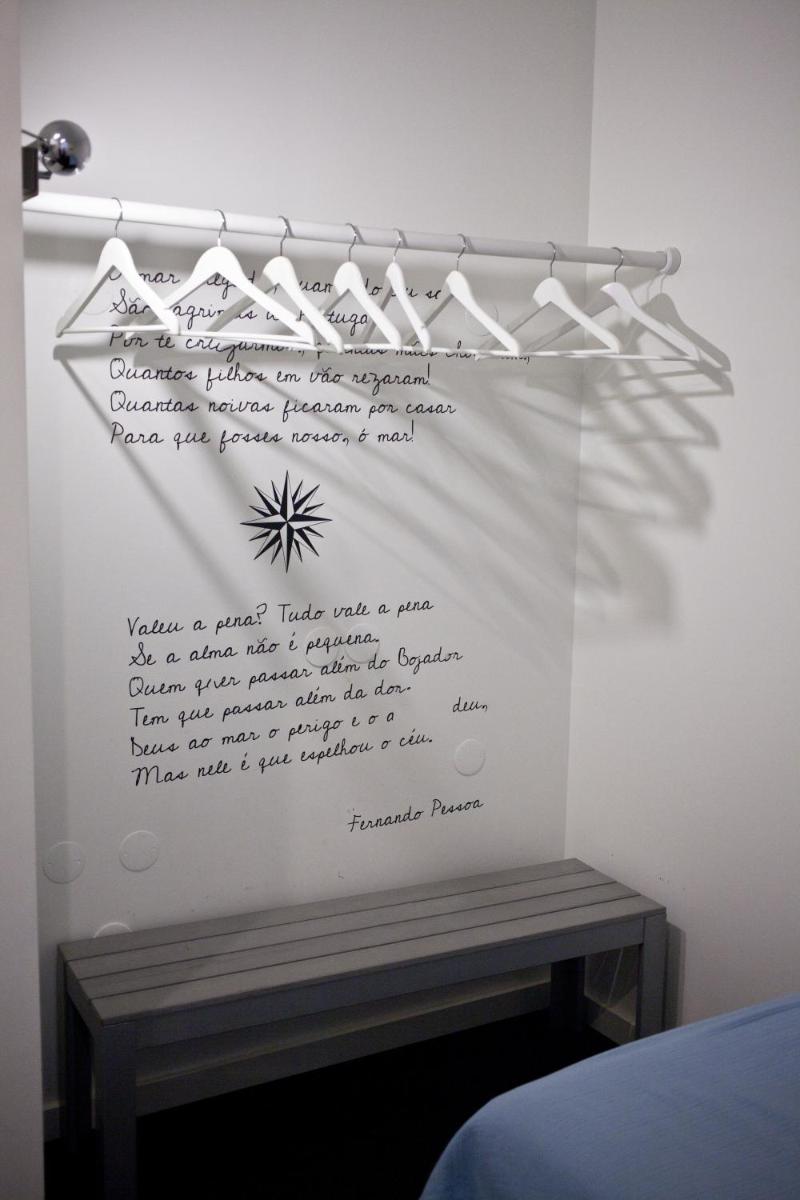 mar
Por te mães
Quantos filhos em vão rezaram!
Quantas noivas ficaram por casar
Para que fosses nosso, ó mar!
Valeu a pena? Tudo vale a pena
Se a alma não é pequena.
Quem quer passar além do Bojador
Tem que passar além da dor.
Deus ao mar o perigo e o a deu,
Mas nele é que espelhou o céu.
Fernando Pessoa